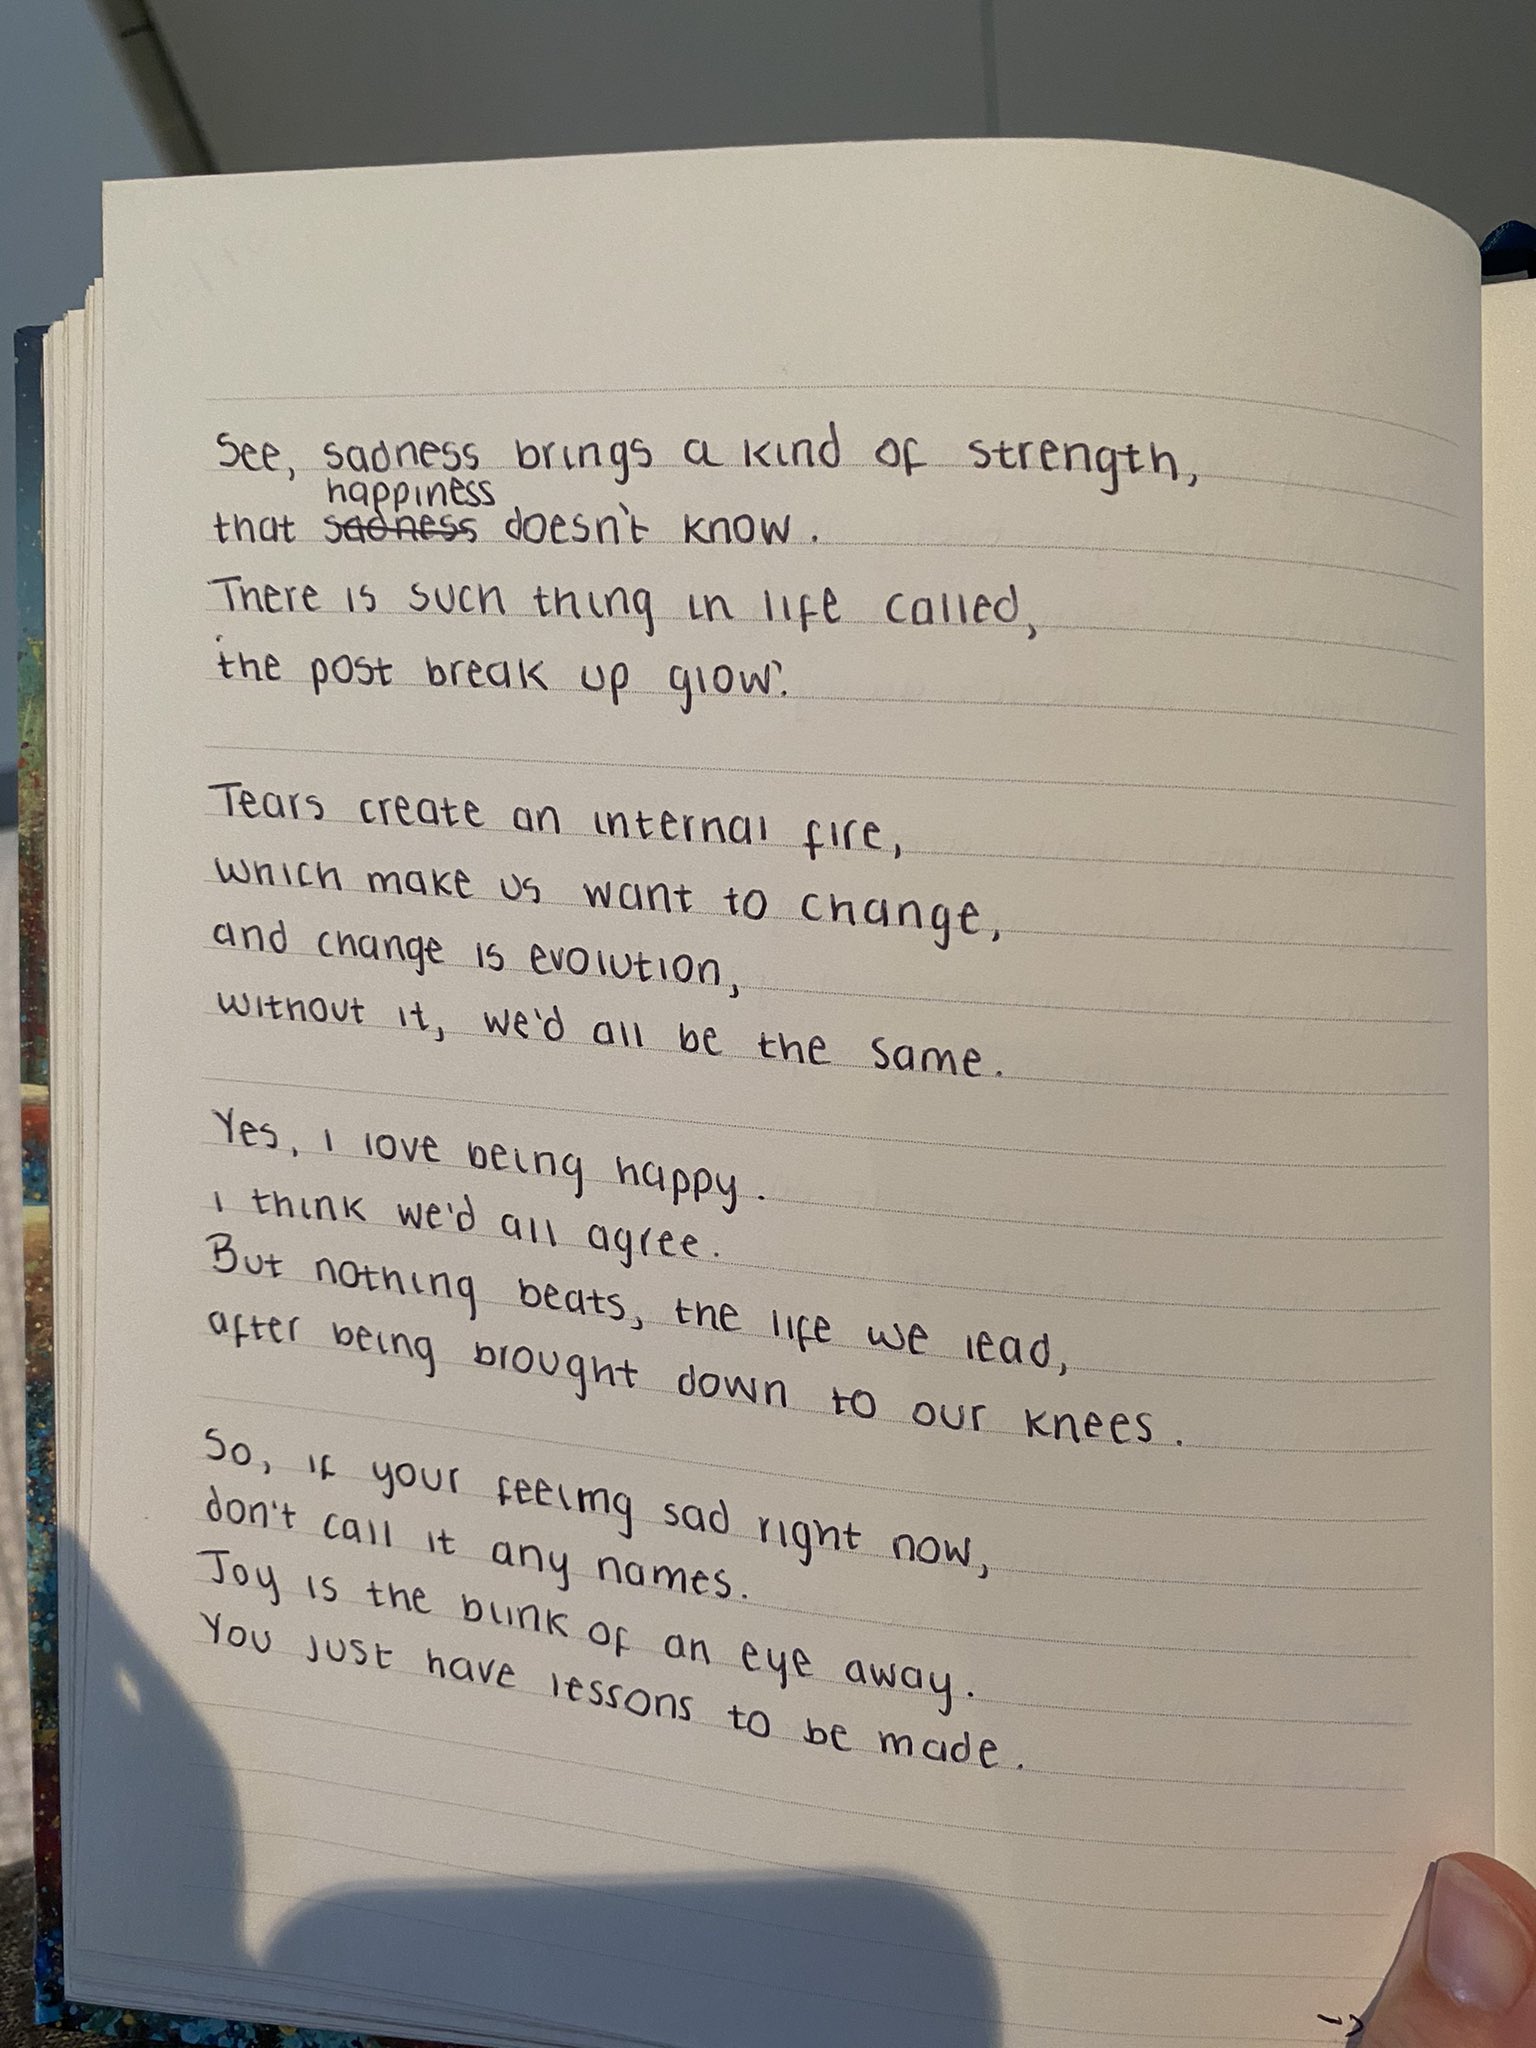 See, sadness brings a kind of strength,
happiness
that sadness doesn't know.
There is such thing in life called,
'the post break up glow'.
Tears create an internal fire,
which make us want to change,
and change is evolution,
without it, we'd all be the same.
Yes, i love being happy.
i think we'd all agree.
But nothing beats, the life we lead,
after being brought down to our knees.
So, if your feeling sad right now,
don't call it any names.
Joy is the blink of an eye away.
You just have lessons to be made.
->